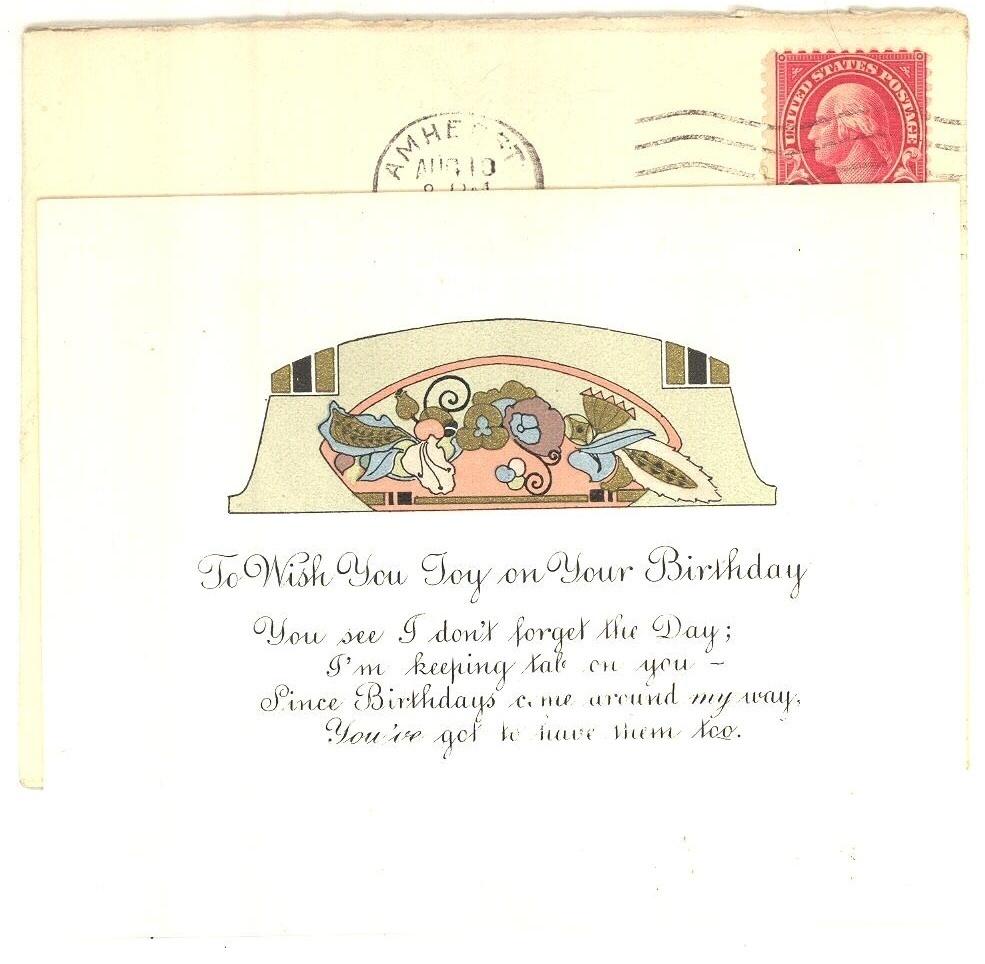 UNITED STATES POSTAGE
AMHERST
AUG 19
To Wish You Joy on Your Birthday
You see I don't forget the Day;
I'm keeping tab on you –
Since Birthdays come around my way,
You've got to have them too.